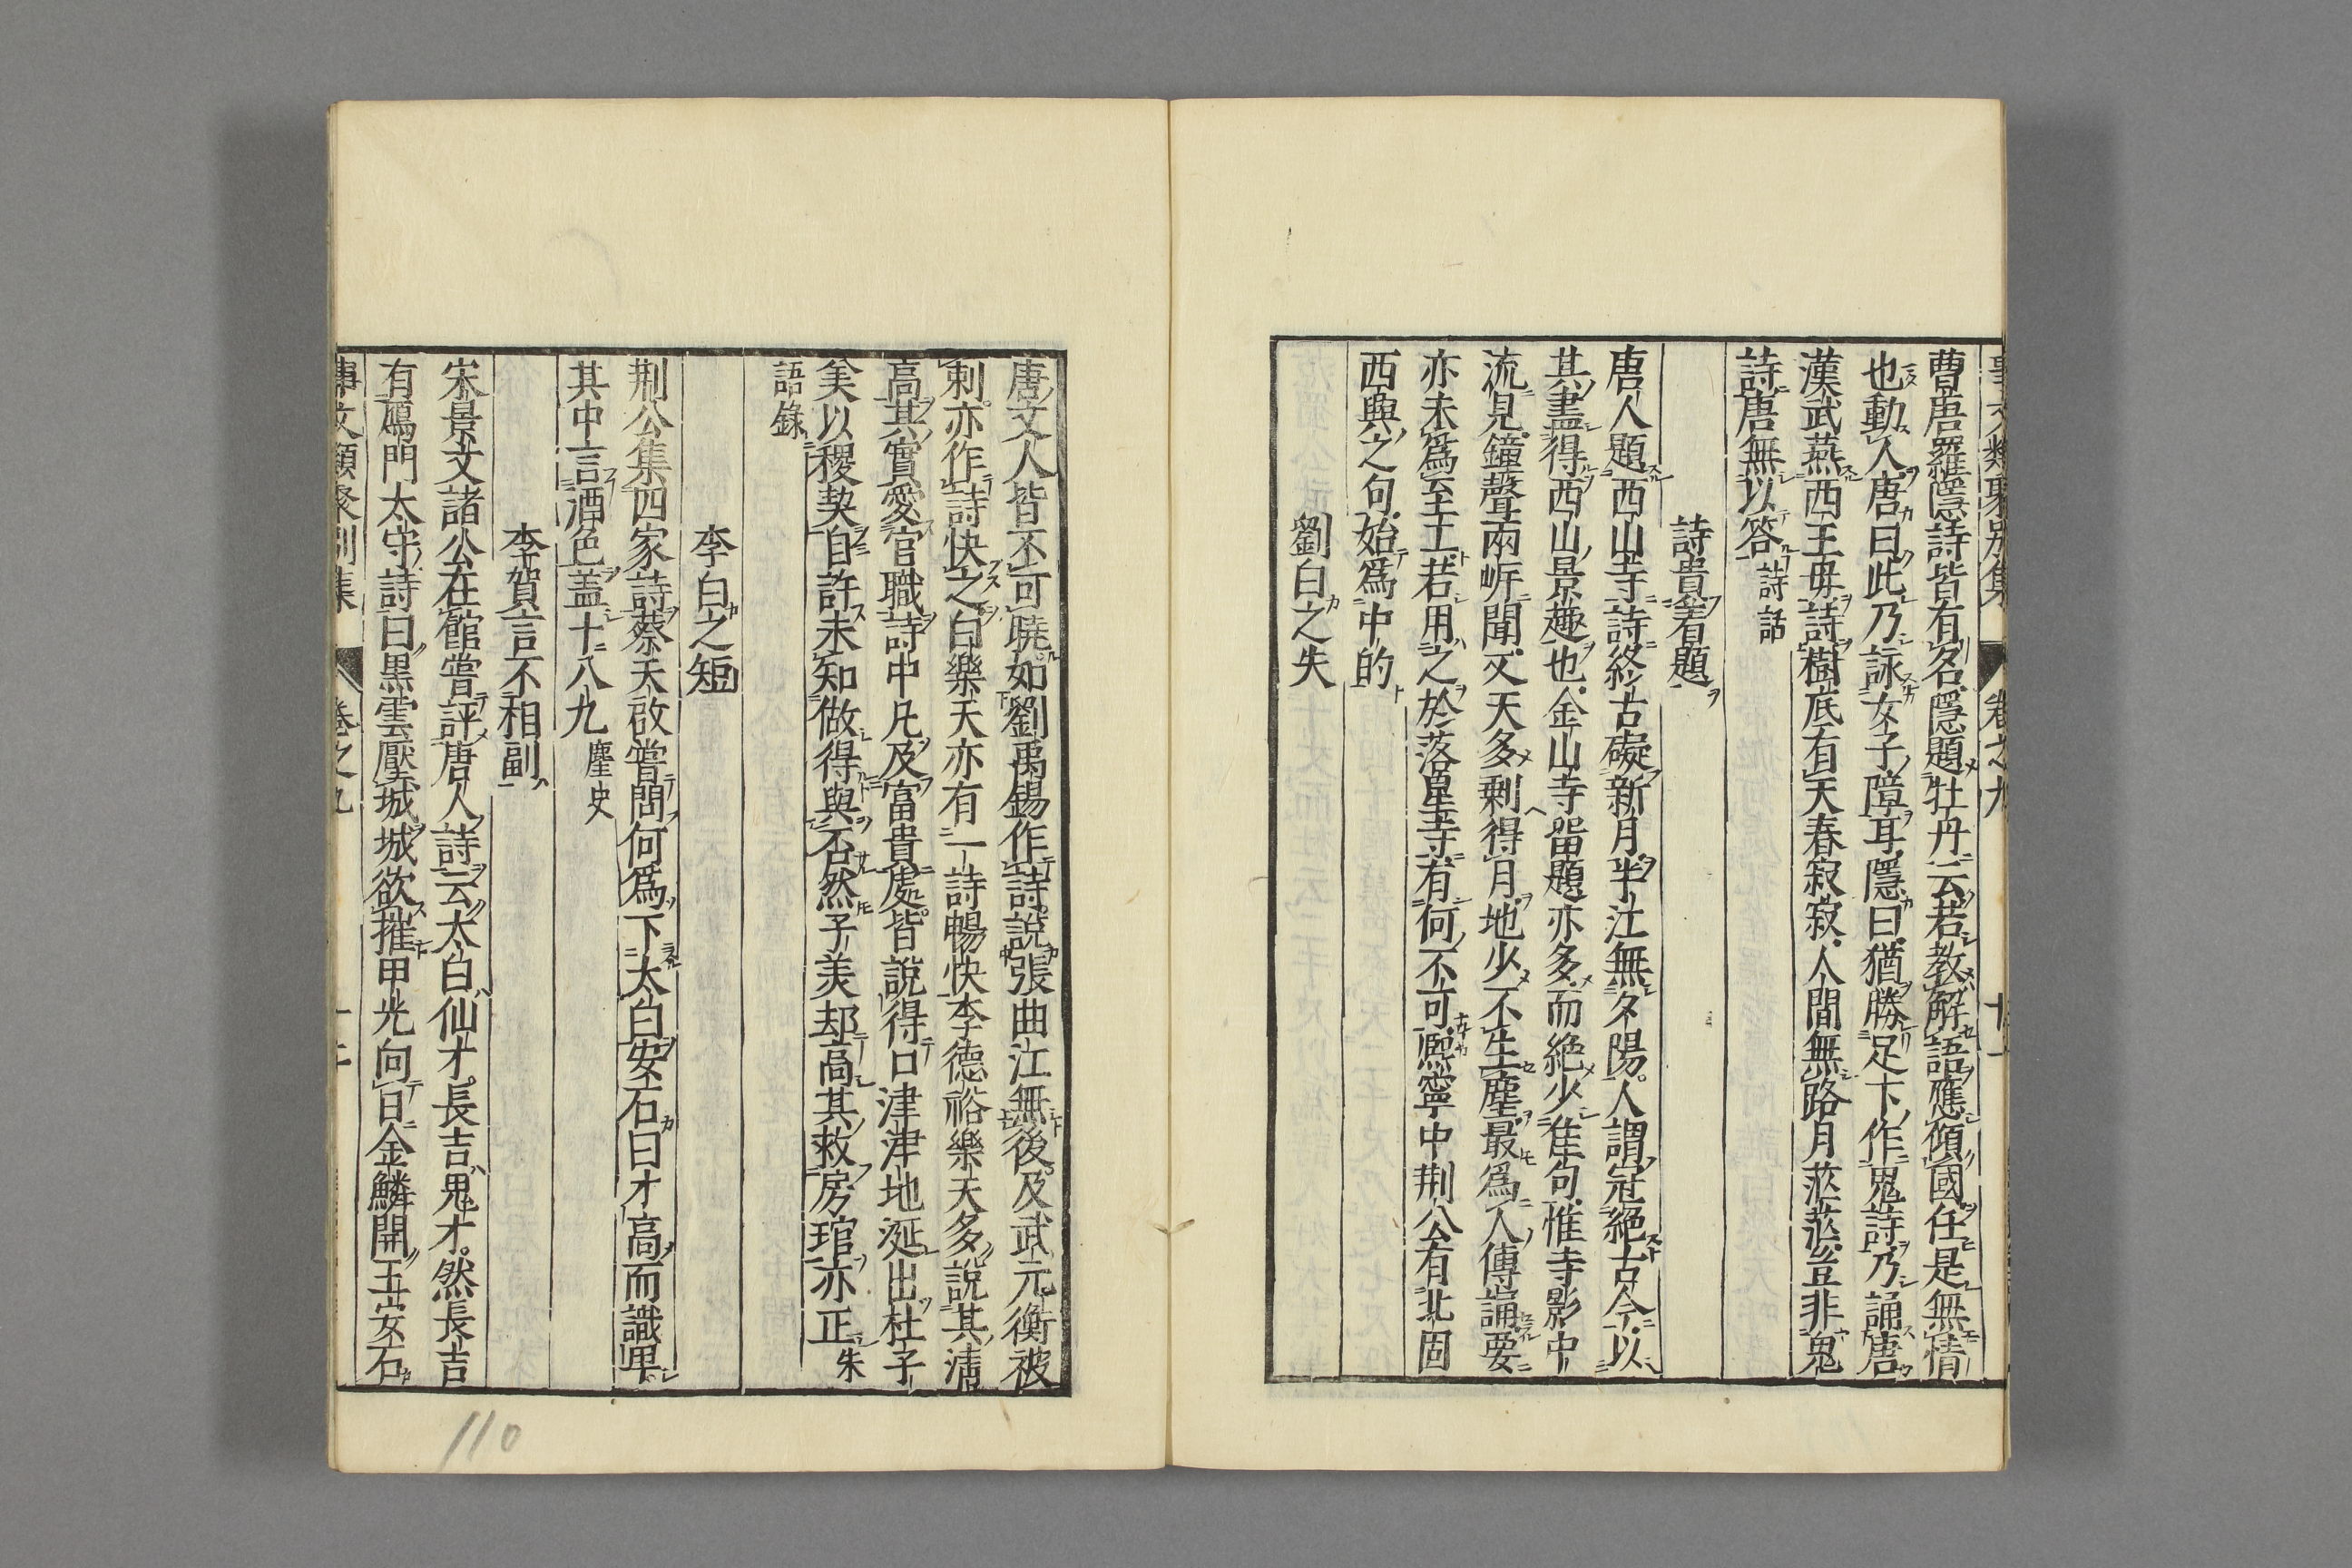 事文類聚別集 卷之九 十一
曹唐羅隱詩皆有名隱題牡丹云若教解語應傾國任是無情
也動人唐曰此乃詠女子障耳隱曰猶勝足下作鬼詩乃誦唐
漢武燕西王母詩樹底有天春寂寂人間無路月茫茫豈非鬼
詩唐無以答詩話
詩貴着題
唐人題西山寺詩終古礙新月半江無夕陽人謂冠絕古今以
其盡得西山景趣也金山寺留題亦多而絕少佳句惟寺影中
流見鐘聲兩岍聞又天多剩得月地少不生塵最爲人傳誦要
亦未爲至工若用之於落星寺有何不可熈寧中荆公有北固
西興之句始爲中的
劉白之失
唐文人皆不可曉如劉禹錫作詩說張曲江無後及武元衡被
刺亦作詩快之白樂天亦有一詩暢快李德裕樂天多說其清
高其實愛官職詩中凡及富貴處皆說得口津津地涎出杜子
美以稷契自許未知做得與否然子美却高其救房琯亦正朱
語錄
李白之短
荆公集四家詩蔡天啟嘗問何爲下太白安石曰才高而識卑
其中言酒色盖十八九塵史
李賀言不相副
宋景文諸公在館嘗評唐人詩云太白仙才長吉鬼才然長吉
有鴈門太守詩曰黒雲壓城城欲摧甲光向日金鱗開王安石
事文類聚別集 卷之九